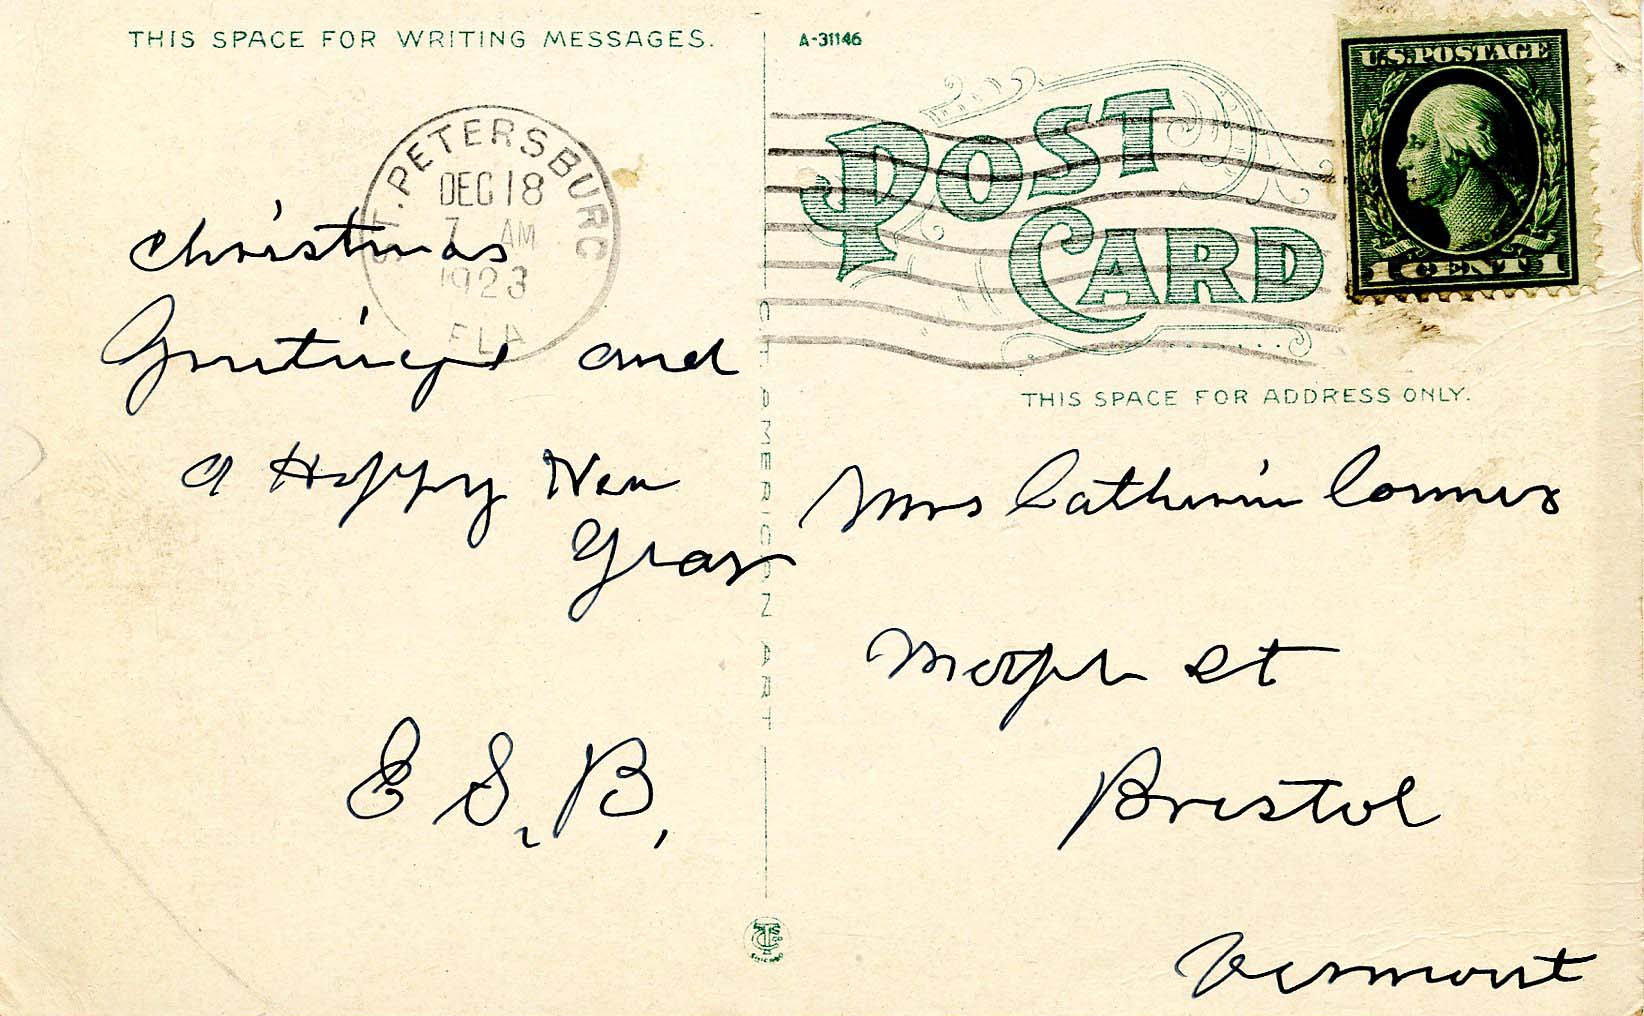 THIS SPACE FOR WRITING MESSAGES.
A-31146
U.S. POSTAGE
1 CENT 1
POST
CARD
ST. PETERSBURG
DEC 18
7 AM
1923
FLA
THIS SPACE FOR ADDRESS ONLY.
C.T. AMERICAN ART
Christmas
Greetings and
A Happy New
Year
E S. B.
Mrs Catherine
St
Bristol
Vermont